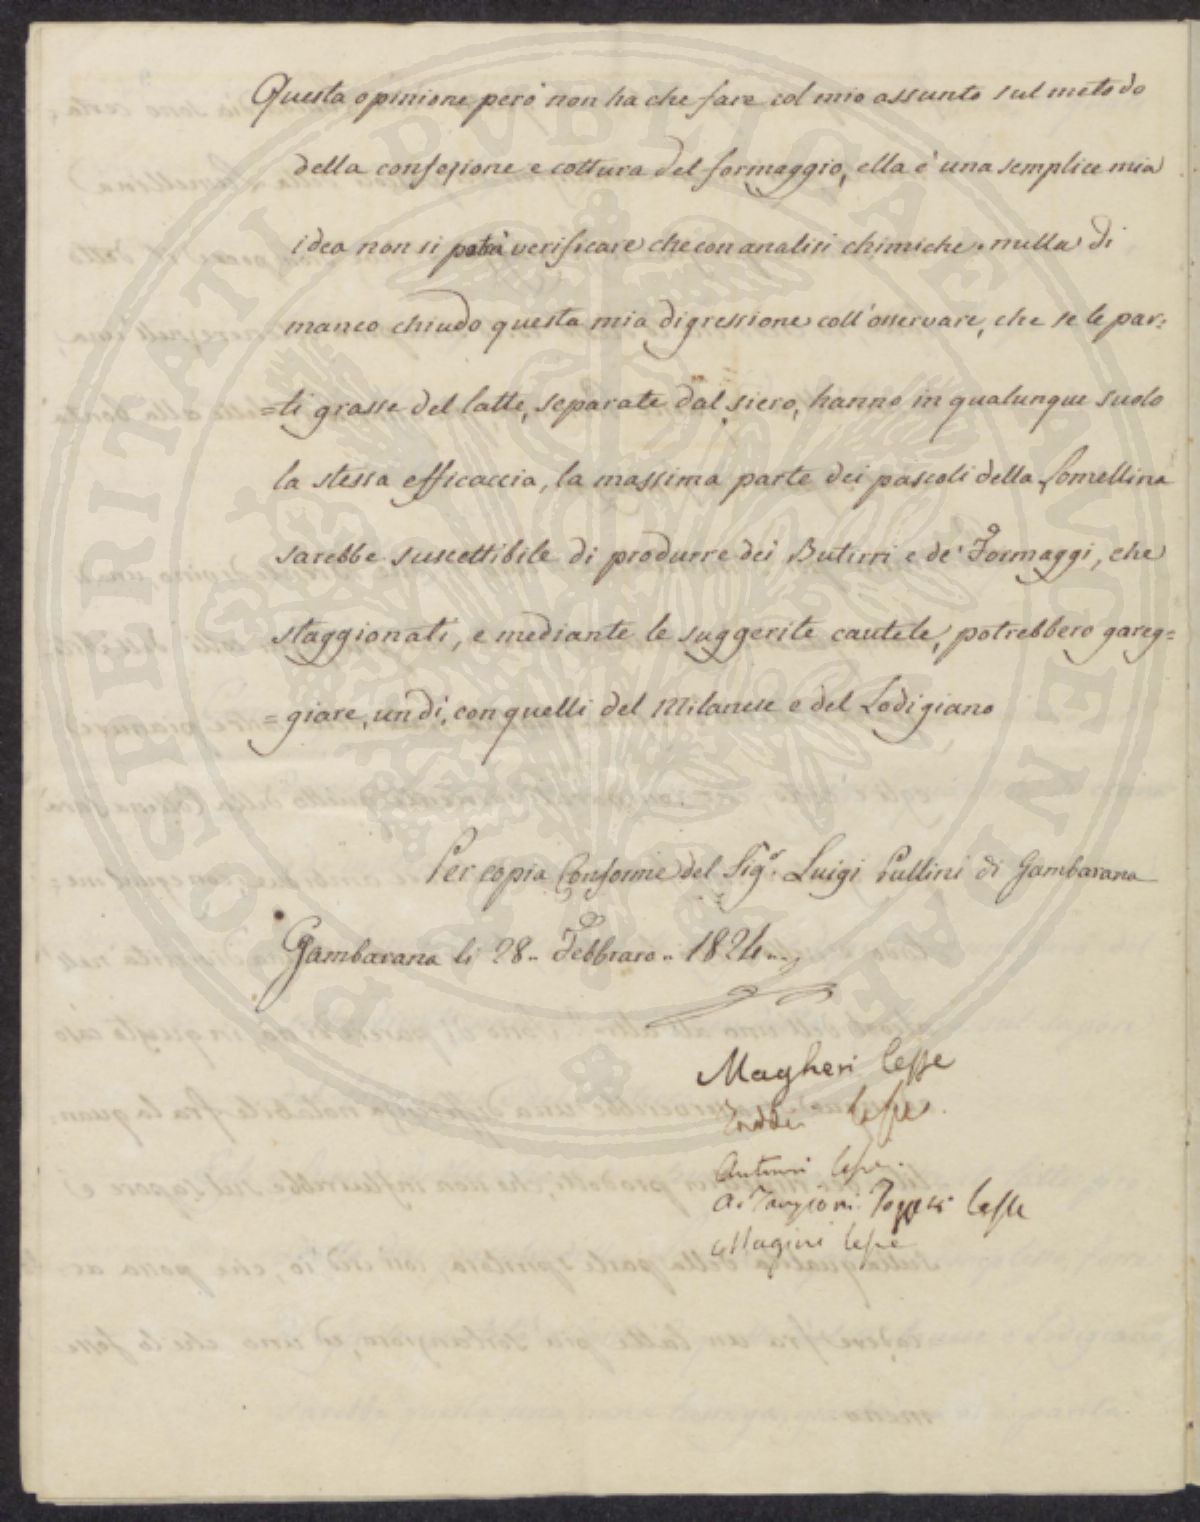 Questa opinione però non ha che fare col mio assunto sul metodo
della confezione e cottura del formaggio, ella è una semplice mia
idea non si potrà verificare che con analisi chimiche. nulla di
manco chiudo questa mia digressione coll'osservare, che se le par:
=ti grasse del latte, separate dal siero, hanno in qualunque suolo
la stessa efficaccia, la massima parte dei pascoli della Lomellina
sarebbe suscettibile di produrre dei Butirri e de' Formaggi, che
staggionati, e mediante le suggerite cautele, potrebbero gareg=
=giare, un dì, con quelli del Milanese e del Lodigiano
Per copia Conforme del Sig.r Luigi Pullini di Gambarana
Gambarana li 28.. Febbraro.. 1824..
Magheri lesse
Taddei lesse
Antinori lesse.
A. Targioni Tozzetti lesse
Magini lesse
PROSPERITATI PUBLICAE AUGENDAE